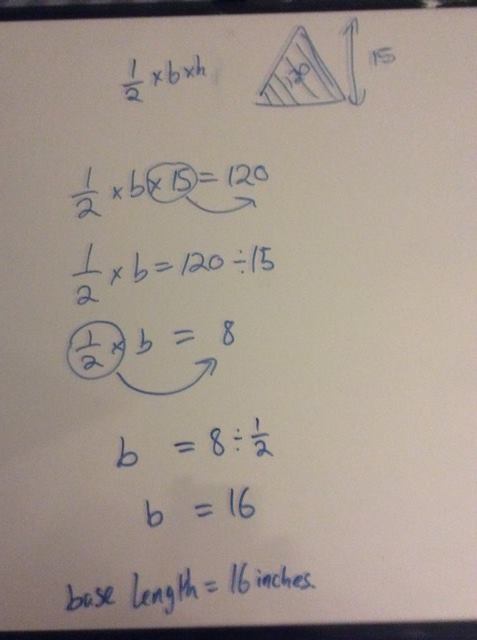 1/2 × b × h
120
15
1/2 × b × 15 = 120
1/2 × b = 120 ÷ 15
1/2 × b = 8
b = 8 ÷ 1/2
b = 16
base length = 16 inches.